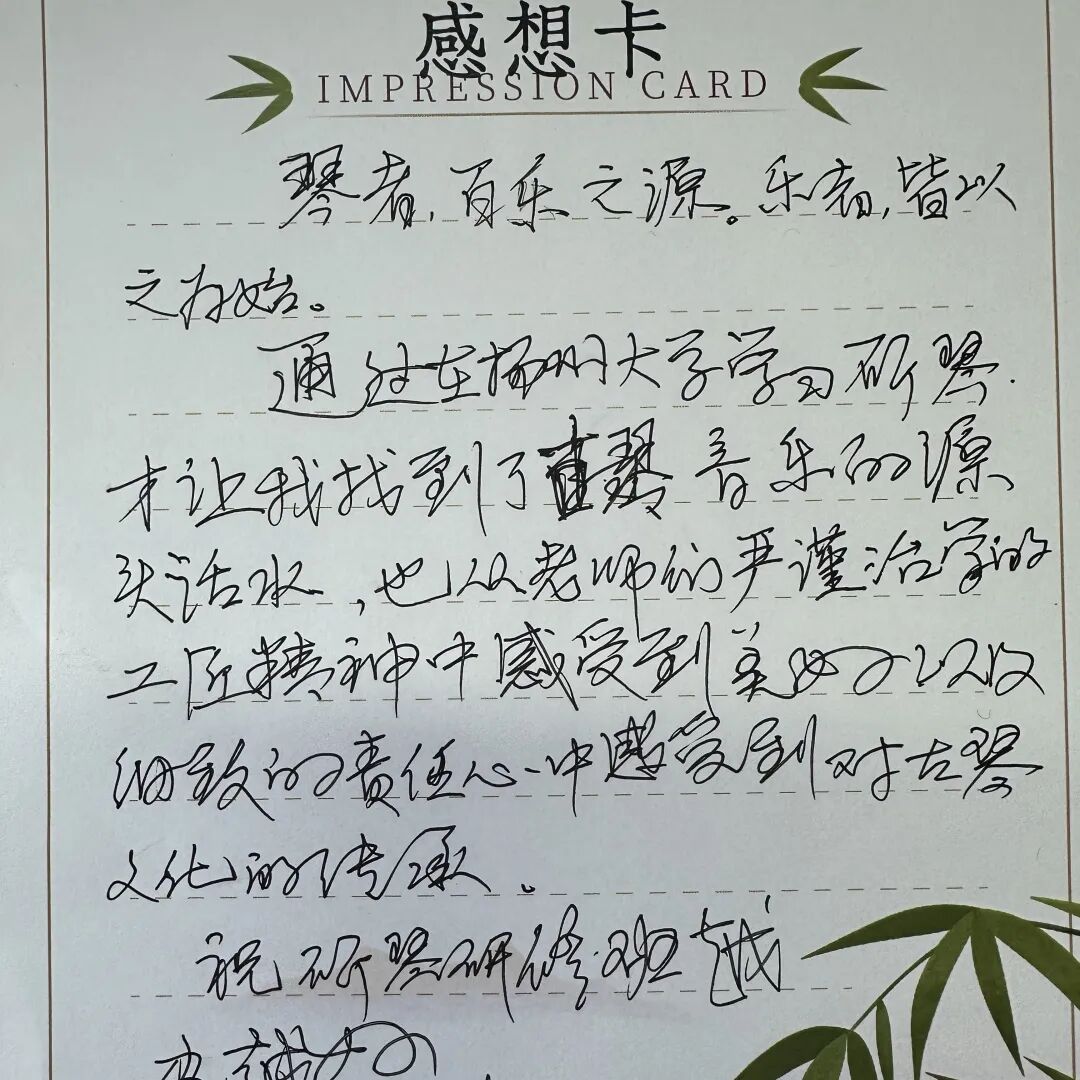 感想卡
IMPRESSION CARD
琴者,百乐之源。乐者,皆以
之为始。
通过在扬州大学学习斫琴.
才让我找到了音乐的源
头活水,也从老师们严谨治学的
工匠精神中感受到美好,以及
细致的责任心中感受到对古琴
文化的传承。
祝斫琴研修班越
办越好